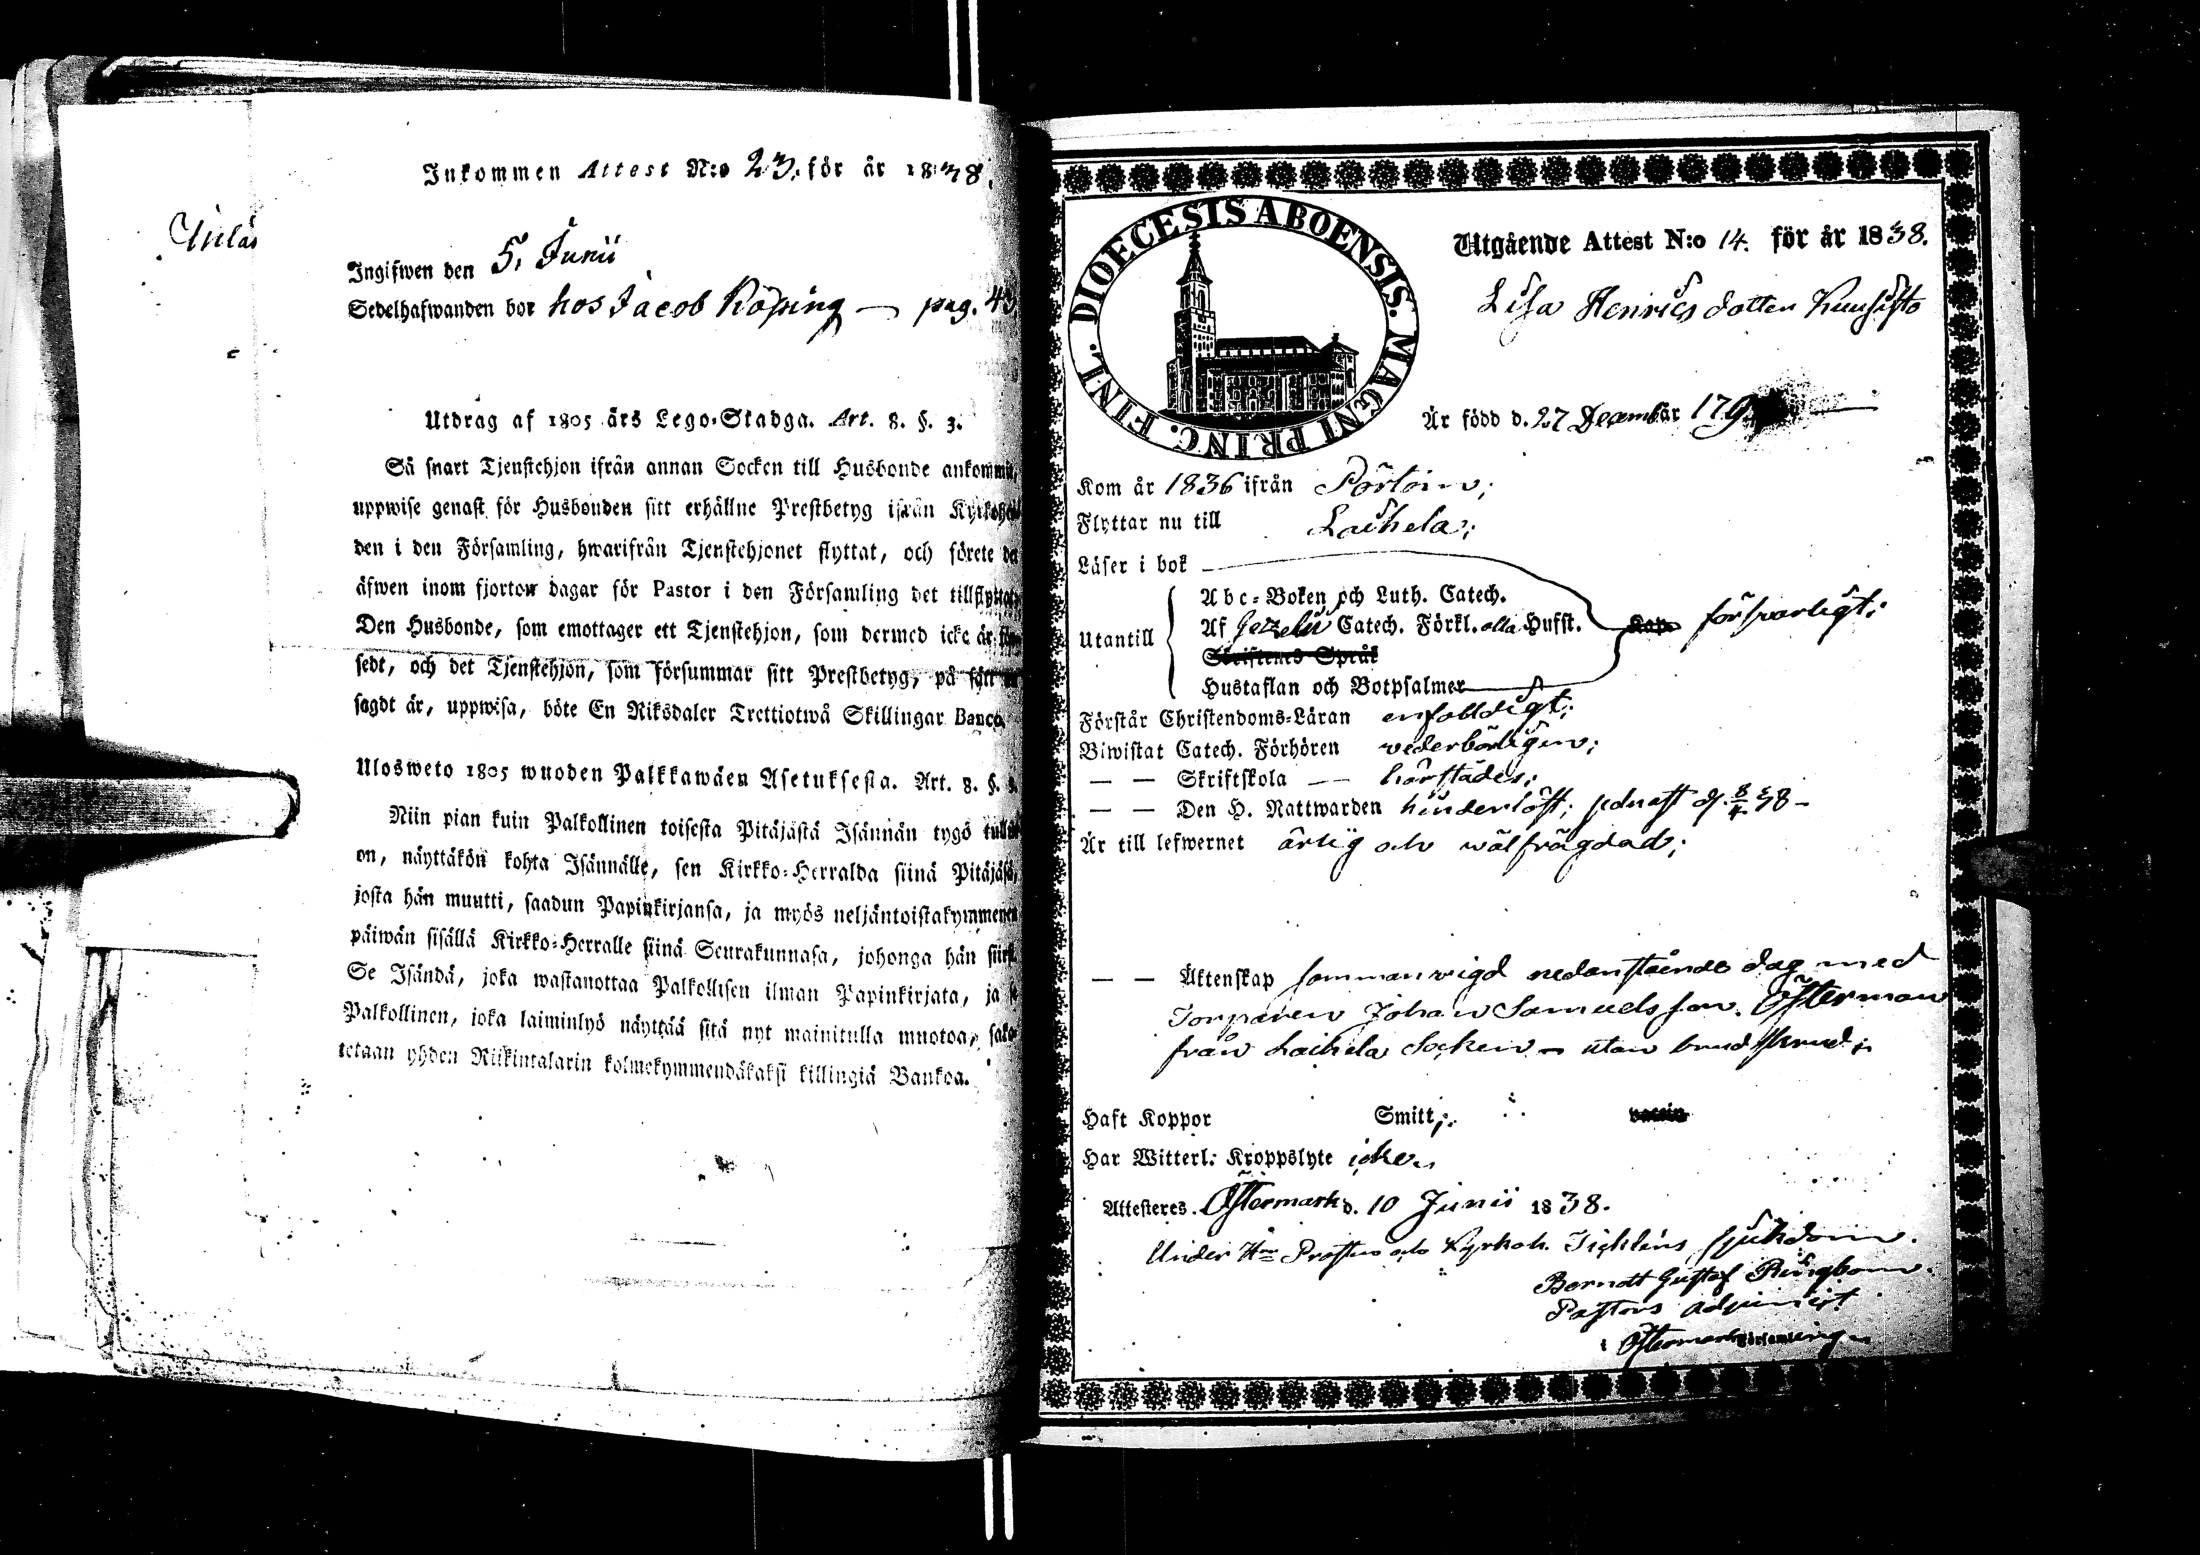 Inkommen Attest N:o 23, för år 1838.
Ingifwen den 5, Junii
Sedelhafwanden bor hos Jacob Köping — pag. 43
Utdrag af 1805 års Lego-Stadga. Art. 8. §. 3.
Så snart Tjenstehjon ifrån annan Socken till Husbonde ankommit,
uppwise genast för Husbonden sitt erhållne Prestbetyg ifrån
den i den Församling, hwarifrån Tjenstehjonet flyttat, och förete det
äfwen inom fjorton dagar för Pastor i den Församling det tillflyttat.
Den Husbonde, som emottager ett Tjenstehjon, som dermed icke är
sedt, och det Tjenstehjon, som försummar sitt Prestbetyg, på sätt
sagdt är, uppwisa, böte En Riksdaler Trettiotwå Skillingar Banco.
Ulosweto 1805 wuoden Palkkawäen Asetuksesta. Art. 8. §. 3.
Niin pian kuin Palkollinen toisesta Pitäjästä Isännän tygö tullut
on, näyttäkön kohta Isännälle, sen Kirkko-Herralda siinä Pitäjäsä,
josta hän muutti, saadun Papinkirjansa, ja myös neljäntoistakymmenen
päiwän sisällä Kirkko-Herralle siinä Seurakunnasa, johonga hän
Se Isändä, joka wastanottaa Palkollisen ilman Papinkirjata, ja se
Palkollinen, joka laiminlyö näyttää sitä nyt mainitulla muotoa, sako-
tetaan yhden Riikintalarin kolmekymmendäkaksi killingiä Bankoa.
DIOECESIS ABOENSIS. MAGNI PRINC. FINL.
Utgående Attest N:o 14. för år 1838.
Lisa Henrics dotter Kuusisto
Är född d. 27 Decemb år 179
Kom år 1836 ifrån Pörtom;
Flyttar nu till Laihela;
Läser i bok —
Abc-Boken och Luth. Catech.
Utantill Af Gezelii Catech. Förkl. alla Husst. försvarligt;
Skriftenes Språk
Hustaflan och Botpsalmer
Förstår Christendoms-Läran enfalldigt;
Biwistat Catech. Förhören vederbörligen;
— — Skriftskola — härstädes;
— — Den H. Nattwarden hinderlöst; sednast d. 8/4 38 –
Är till lefwernet ärlig och wälfrägdad;
— — Äktenskap sammanvigd nedanstående dag med
Torparen Johan Samuelsson Österman
från Laihela Socken – utan brudskrud;
Haft Koppor Smitt;. vaccin
Har Witterl: Kroppslyte icke.
Attesteres. Östermark d. 10 Junii 1838.
Under Hrr Prosten och Kyrkoh. Sjukdom.
Berndt Gustaf Ringbom.
Pastors adjunct
i Östermark församling